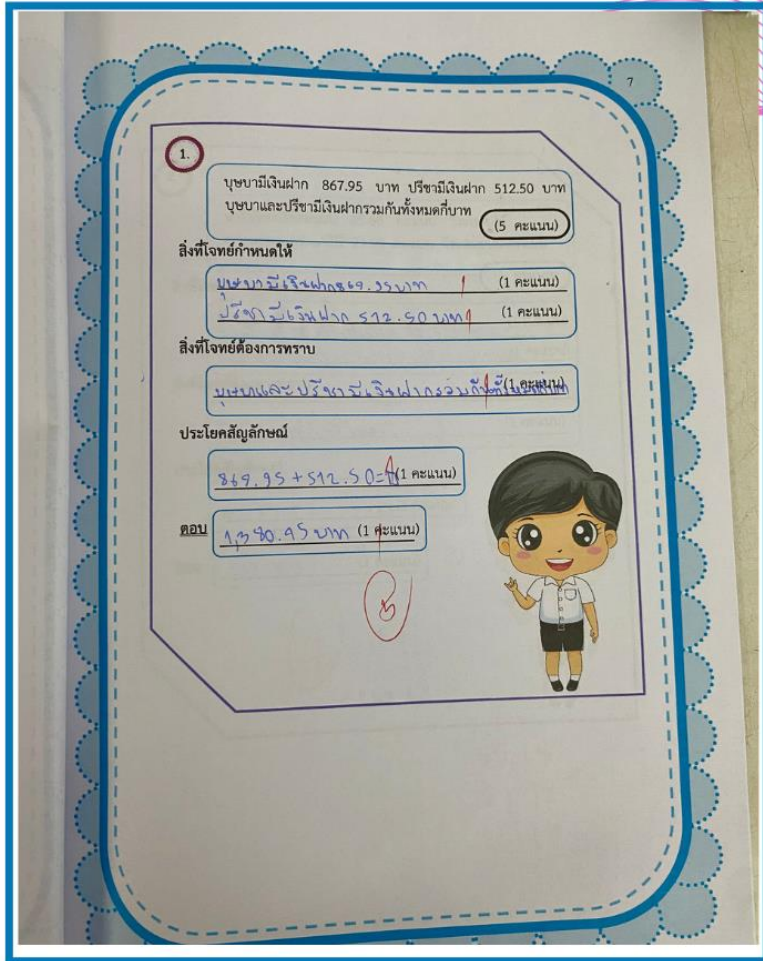 7
1.
บุษบามีเงินฝาก 867.95 บาท ปรีชามีเงินฝาก 512.50 บาท
บุษบาและปรีชามีเงินฝากรวมกันทั้งหมดกี่บาท
(5 คะแนน)
สิ่งที่โจทย์กำหนดให้
บุษบามีเงินฝาก869.95บาท (1 คะแนน)
ปรีชามีเงินฝาก 512.50 บาท (1 คะแนน)
สิ่งที่โจทย์ต้องการทราบ
บุษบาและปรีชามีเงินฝากรวมกันทั้งหมดกี่บาท (1 คะแนน)
ประโยคสัญลักษณ์
869.95+512.50= (1 คะแนน)
ตอบ 1,380.45 บาท (1 คะแนน)
5